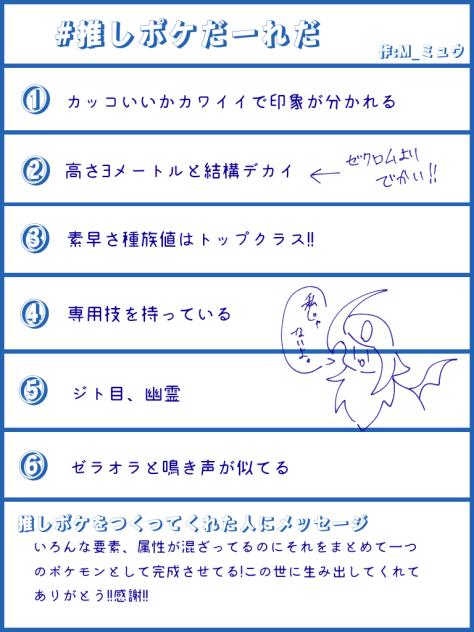 #推しポケだーれだ
作:M_ミュウ
① カッコいいかカワイイで印象が分かれる
② 高さ3メートルと結構デカイ
ゼクロムより
でかい!!
③ 素早さ種族値はトップクラス!!
④ 専用技を持っている
私じゃ
ないよ。
⑤ ジト目、幽霊
⑥ ゼラオラと鳴き声が似てる
推しポケをつくってくれた人にメッセージ
いろんな要素、属性が混ざってるのにそれをまとめて一つ
のポケモンとして完成させてる!この世に生み出してくれて
ありがとう!!感謝!!